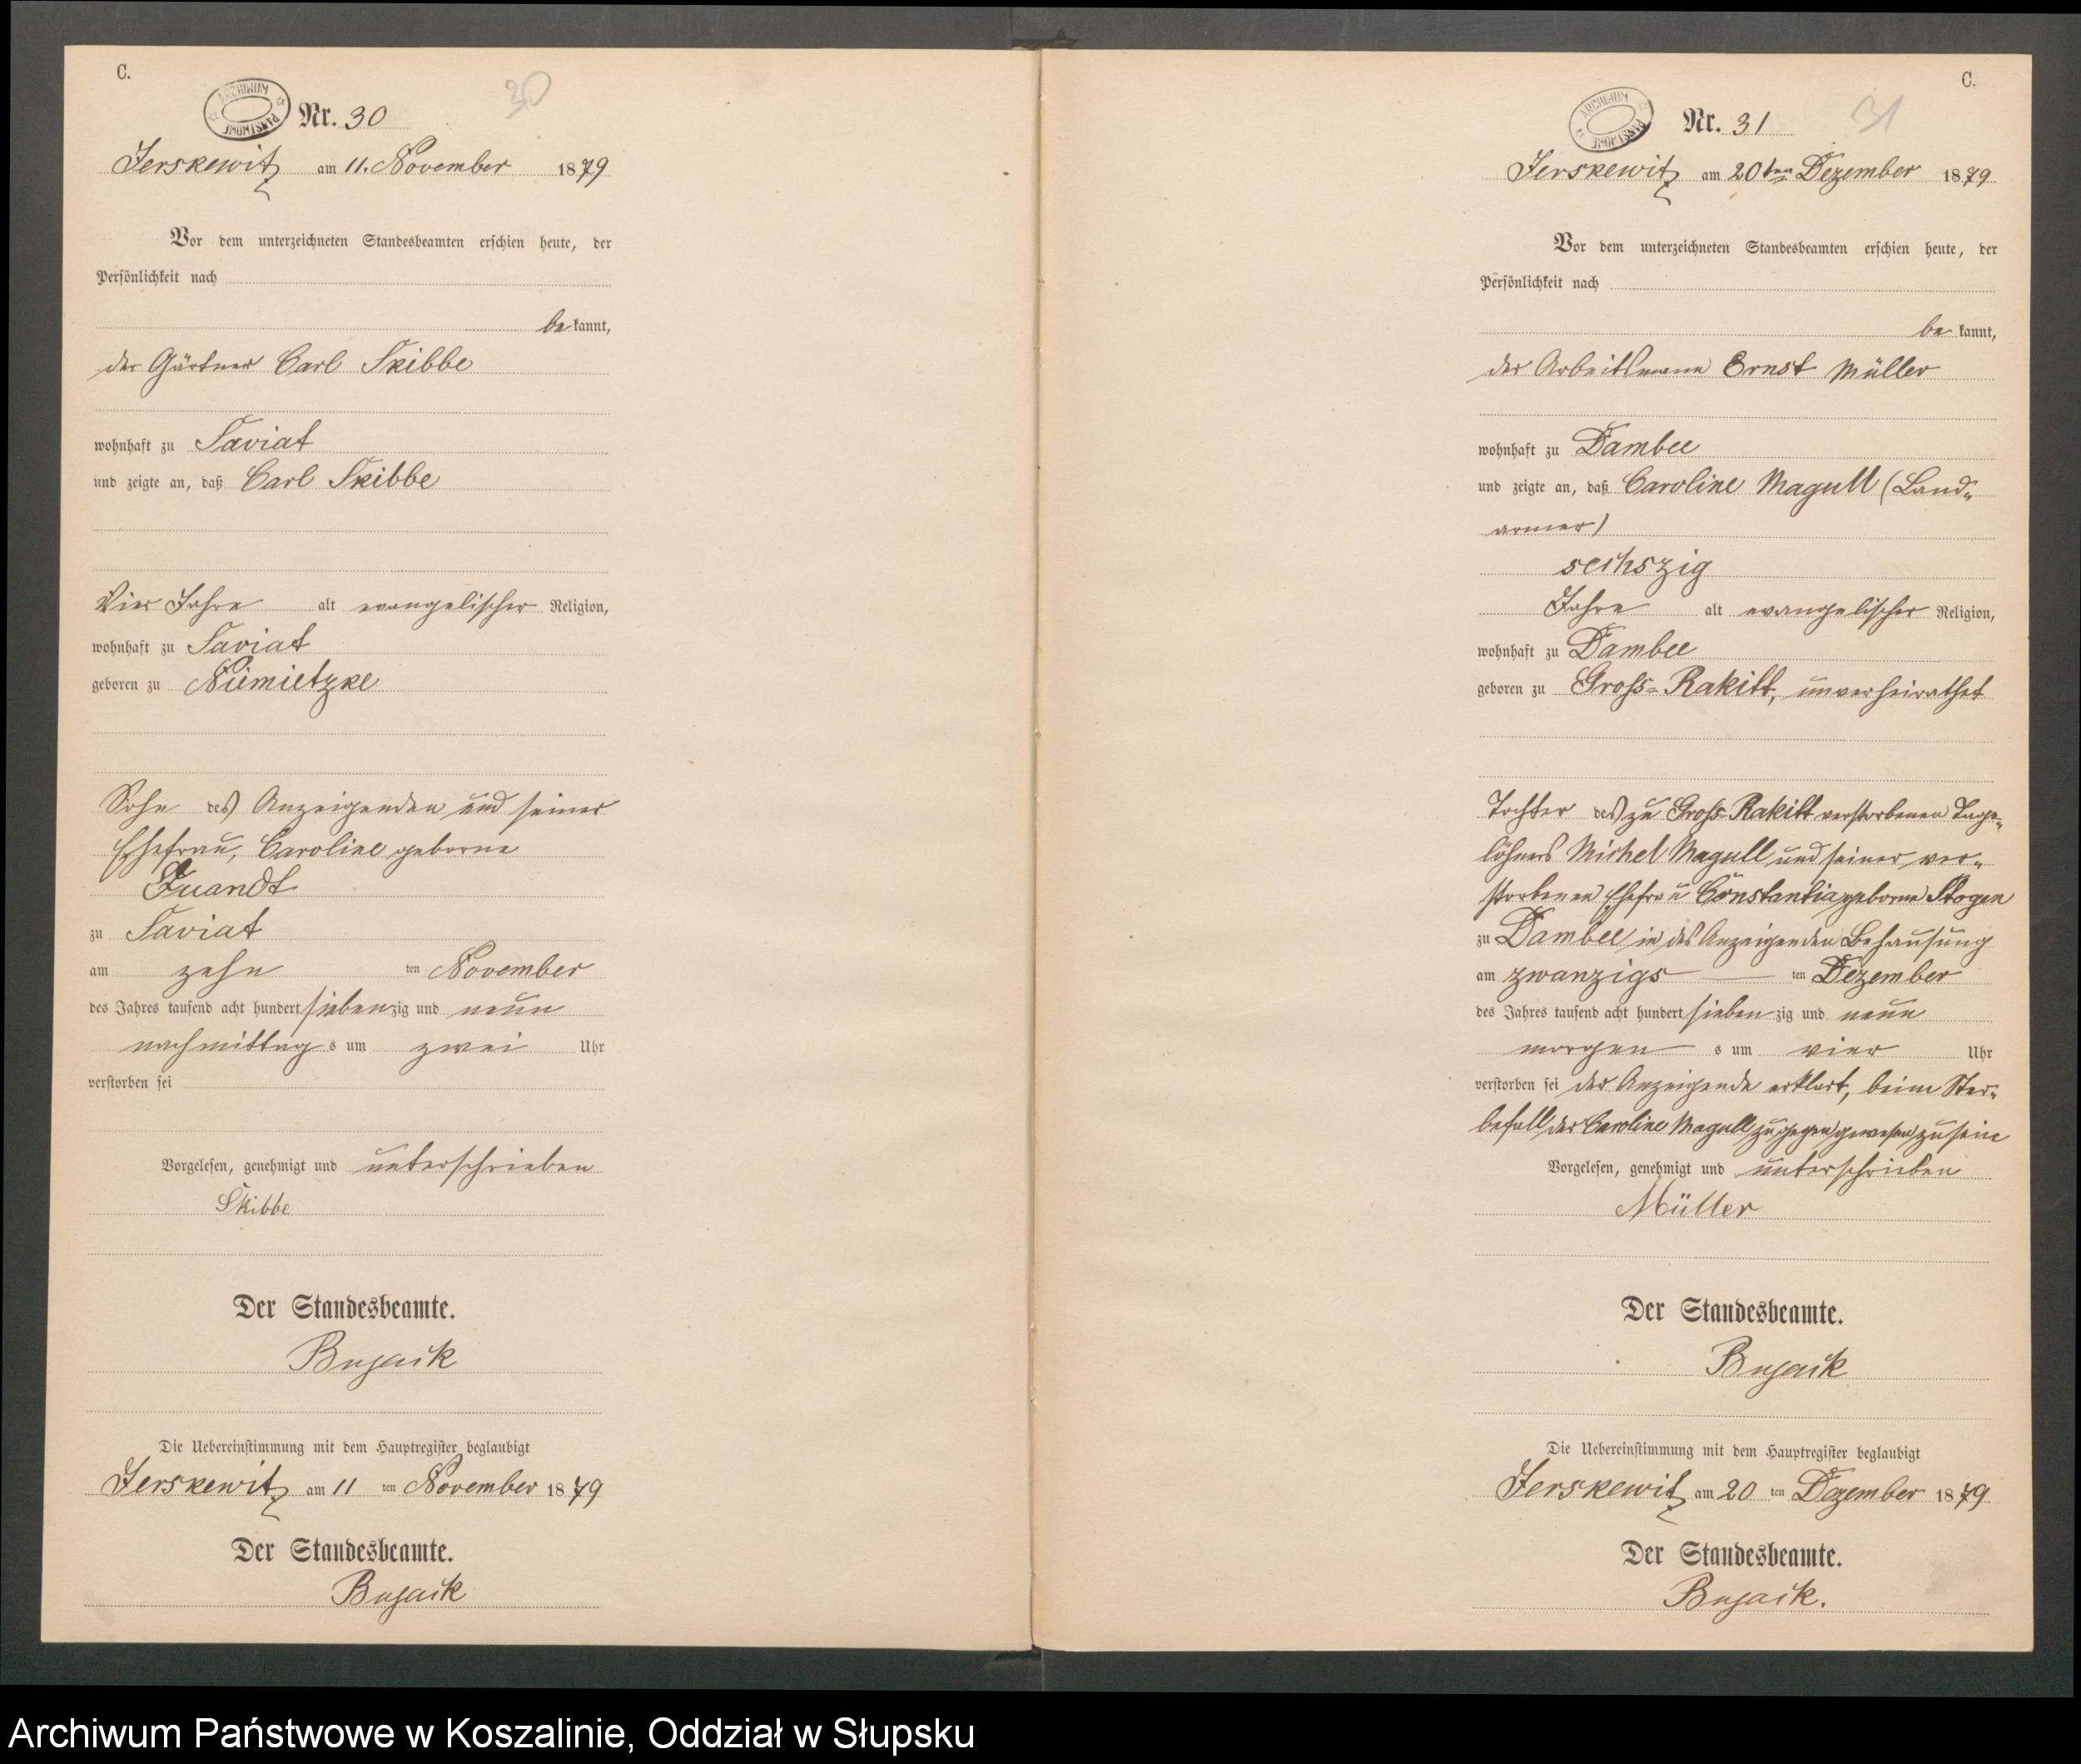 C.
ARCHIWUM PAŃSTWOWE
Nr. 30
30
Jerskewitz am 11. November 1879
Vor dem unterzeichneten Standesbeamten erschien heute, der
Persönlichkeit nach
be kannt,
der Gärtner Carl Skibbe
wohnhaft zu Saviat
und zeigte an, daß Carl Skibbe
Vier Jahre alt evangelischer Religion,
wohnhaft zu Saviat
geboren zu Niemietzke
Sohn des Anzeigenden und seiner
Ehefrau, Caroline geborne
Quandt
zu Saviat
am zehn ten November
des Jahres tausend acht hundert siebenzig und neun
nachmittag s um zwei Uhr
verstorben sei
Vorgelesen, genehmigt und unterschrieben
Skibbe
Der Standesbeamte.
Bujack
Die Uebereinstimmung mit dem Hauptregister beglaubigt
Jerskewitz am 11 ten November 1879
Der Standesbeamte.
Bujack
C.
ARCHIWUM PAŃSTWOWE
Nr. 31
31
Jerskewitz am 20ten Dezember 1879
Vor dem unterzeichneten Standesbeamten erschien heute, der
Persönlichkeit nach
be kannt,
der Arbeitsmann Ernst Müller
wohnhaft zu Dambee
und zeigte an, daß Caroline Magull (Land-
armer)
sechszig
Jahre alt evangelischer Religion,
wohnhaft zu Dambee
geboren zu Gross-Rakitt, unverheirathet
Tochter des zu Gross-Rakitt verstorbenen Tage-
löhners Michel Magull und seiner ver-
storbenen Ehefrau Constantia geborne Stogen
zu Dambee in des Anzeigenden Behausung
am zwanzigs ten Dezember
des Jahres tausend acht hundert sieben zig und neun
morgen s um vier Uhr
verstorben sei der Anzeigende erklart, beim Ster-
befall der Caroline Magull zugegen gewesen zu sein
Vorgelesen, genehmigt und unterschrieben
Müller
Der Standesbeamte.
Bujack
Die Uebereinstimmung mit dem Hauptregister beglaubigt
Jerskewitz am 20 ten Dezember 1879
Der Standesbeamte.
Bujack.
Archiwum Państwowe w Koszalinie, Oddział w Słupsku